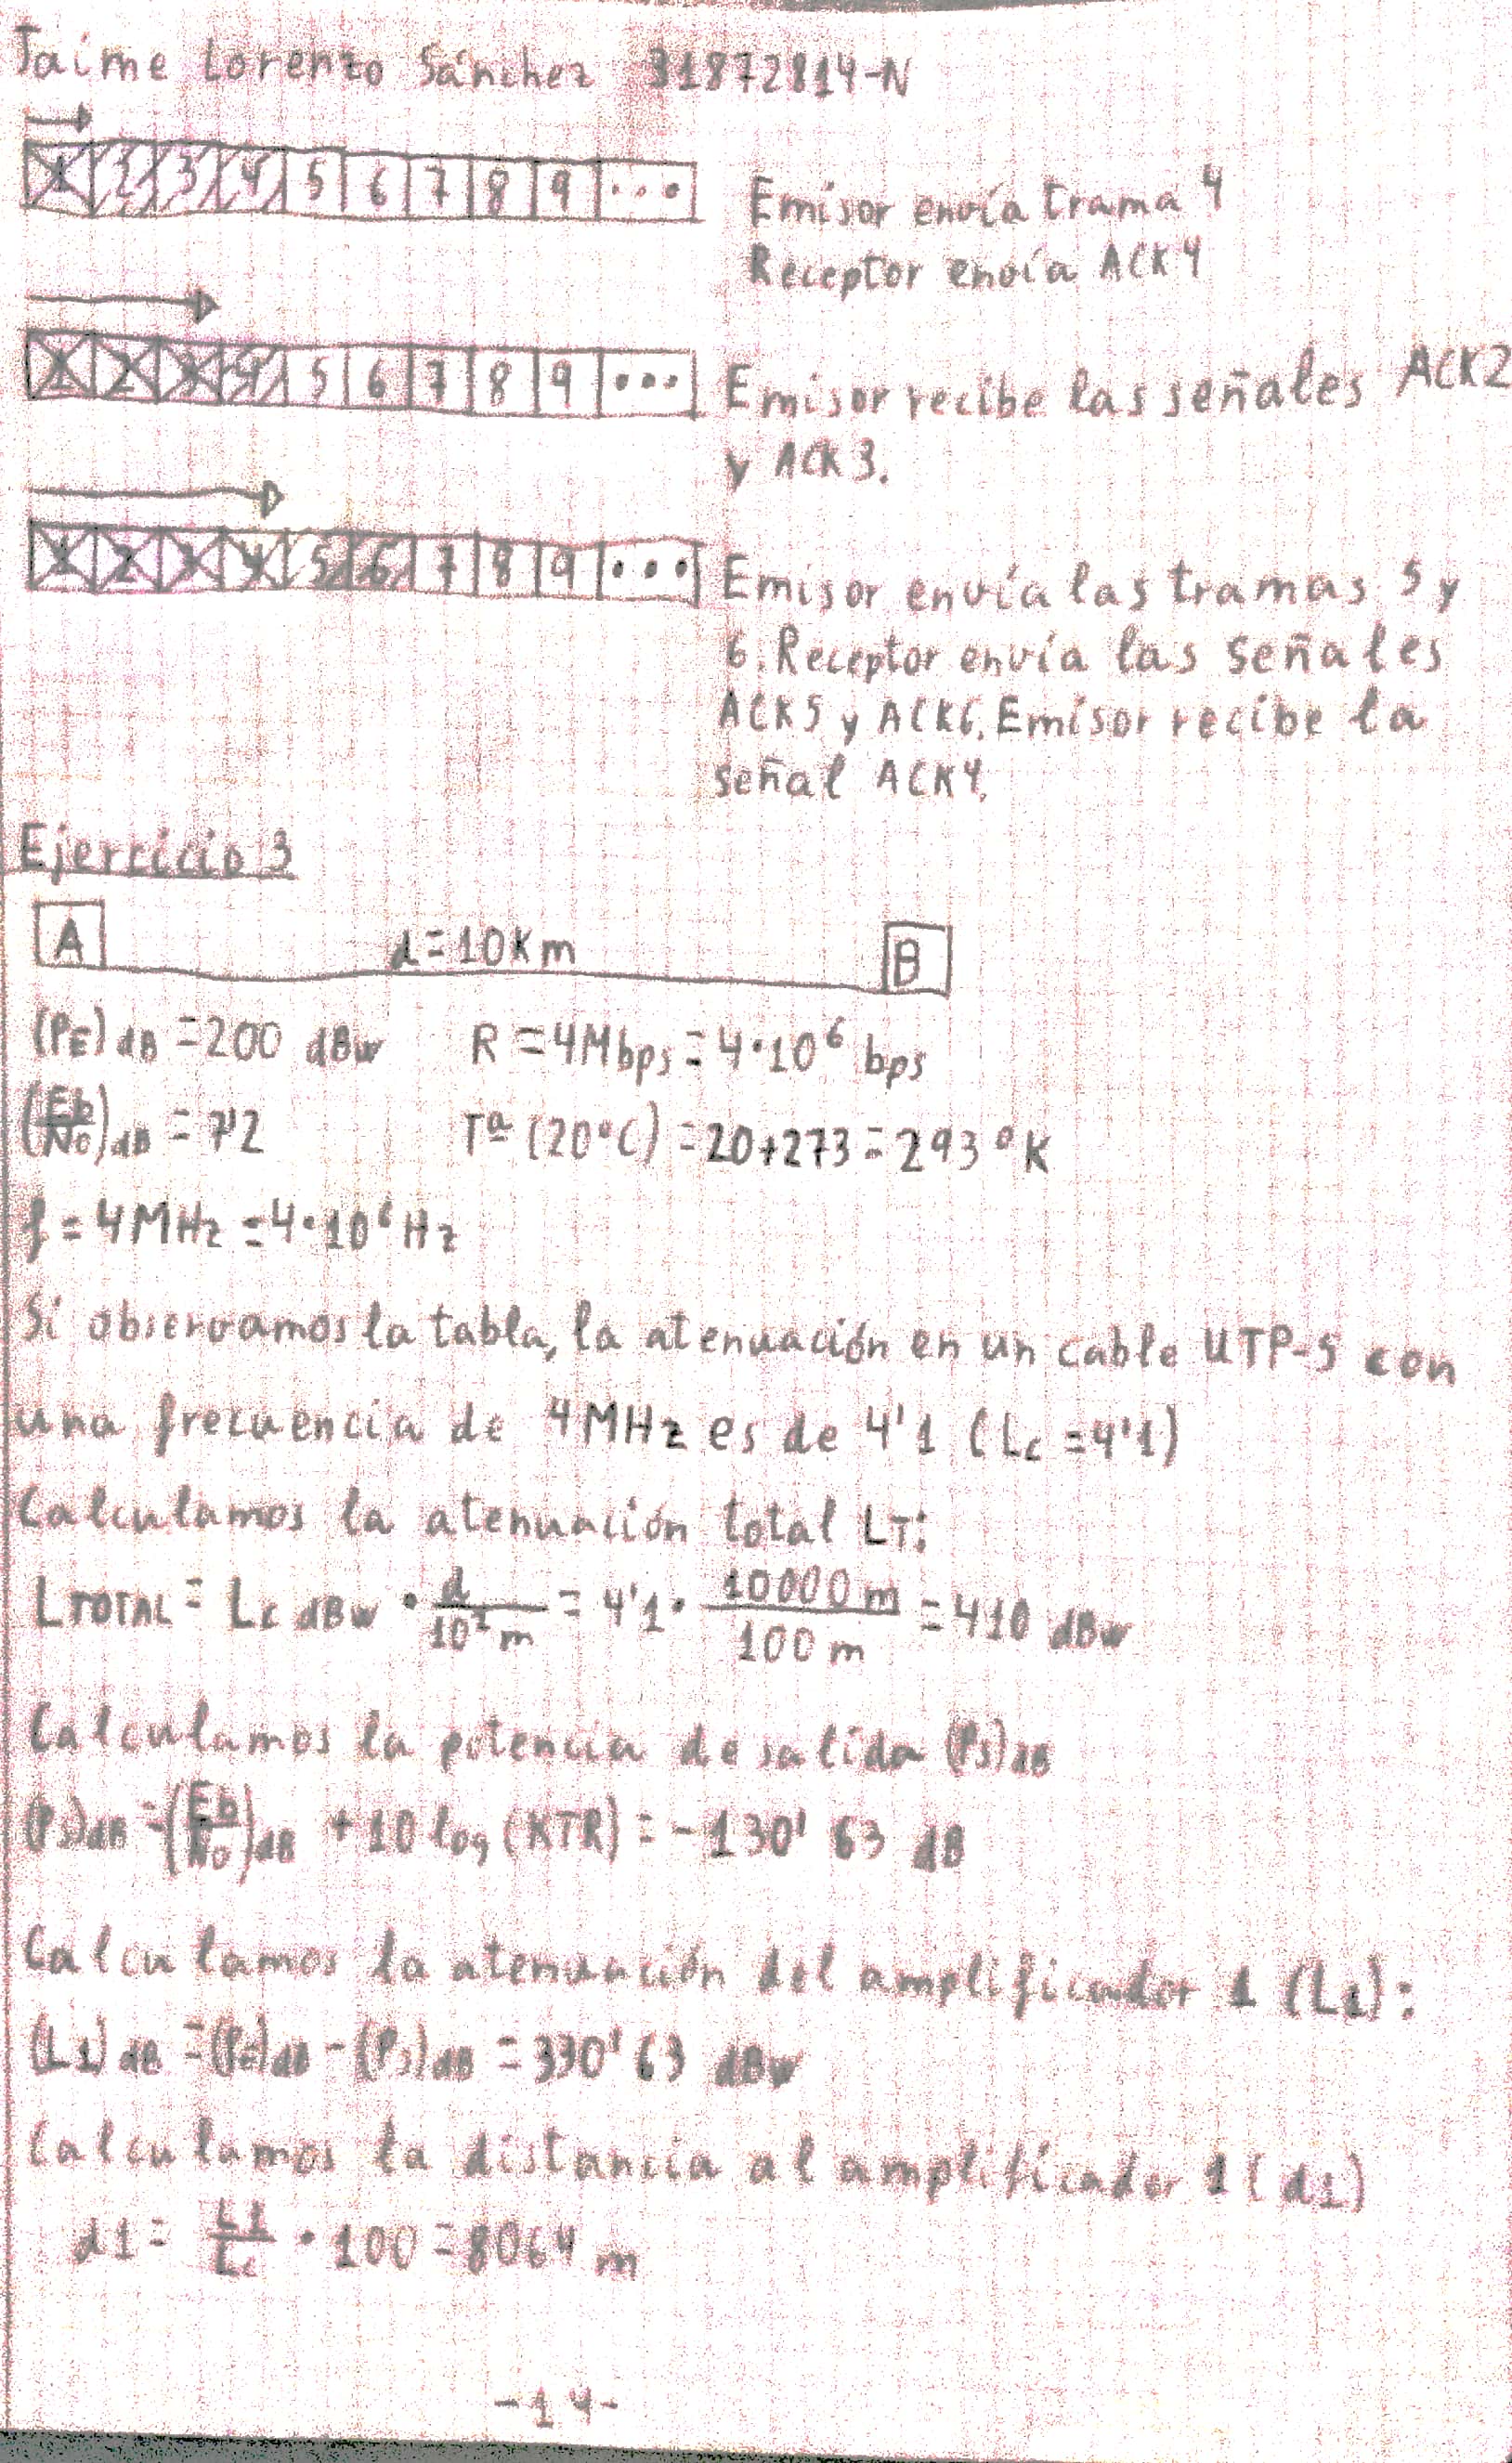 Jaime Lorenzo Sánchez 31872814-N
1 2 3 4 5 6 7 8 9 ...
Emisor envía trama 4
Receptor envía ACK4
1 2 3 4 5 6 7 8 9 ...
Emisor recibe las señales ACK2
y ACK3.
1 2 3 4 5 6 7 8 9 ...
Emisor envía las tramas 5 y
6. Receptor envía las señales
ACK5 y ACK6. Emisor recibe la
señal ACK4.
Ejercicio 3
A d=10Km B
(PE)dB = 200 dBw R = 4Mbps = 4·10⁶ bps
(Eb/No)dB = 7'2 Tª (20°C) = 20+273 = 293°K
f = 4MHz = 4·10⁶ Hz
Si observamos la tabla, la atenuación en un cable UTP-5 con
una frecuencia de 4MHz es de 4'1 (Lc = 4'1)
Calculamos la atenuación total LT:
LTOTAL = Lc dBw · d/10² m = 4'1 · 10000 m/100 m = 410 dBw
Calculamos la potencia de salida (Ps)dB
(Ps)dB = (Eb/No)dB + 10 log (KTR) = -130'63 dB
Calculamos la atenuación del amplificador 1 (L1):
(L1)dB = (PE)dB - (Ps)dB = 330'63 dBw
Calculamos la distancia al amplificador 1 (d1)
d1 = L1/Lc · 100 = 8064 m
-14-